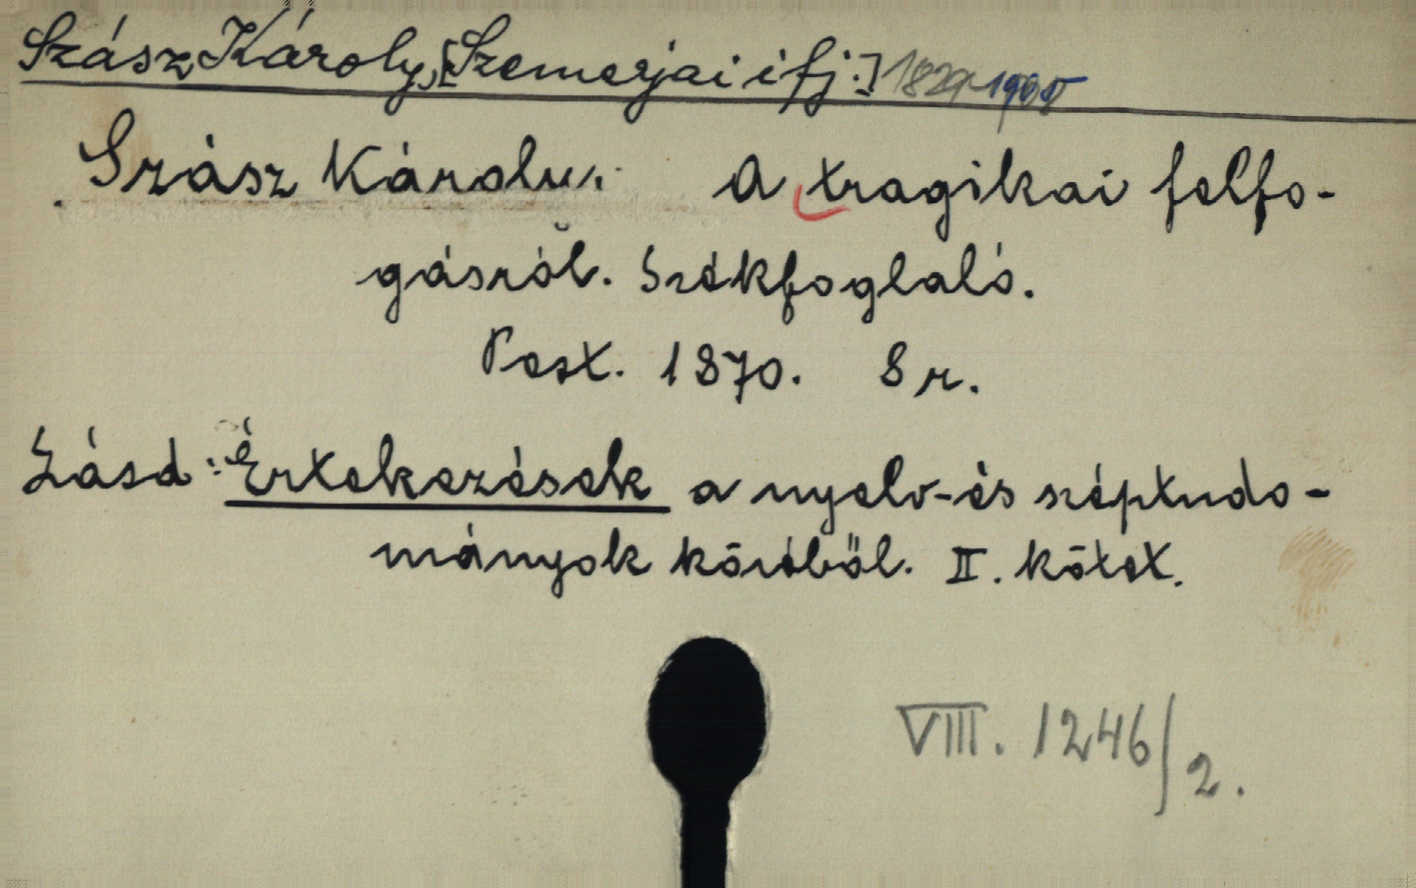 Szász Károly, [Szemerjai ifj.] 1829-1905
Szász Károly. A tragikai felfo-
gásról. Székfoglaló.
Pest. 1870. 8 r.
Lásd: Értekezések a nyelv-és széptudo-
mányok köréből. II. kötet.
VIII. 1246/2.